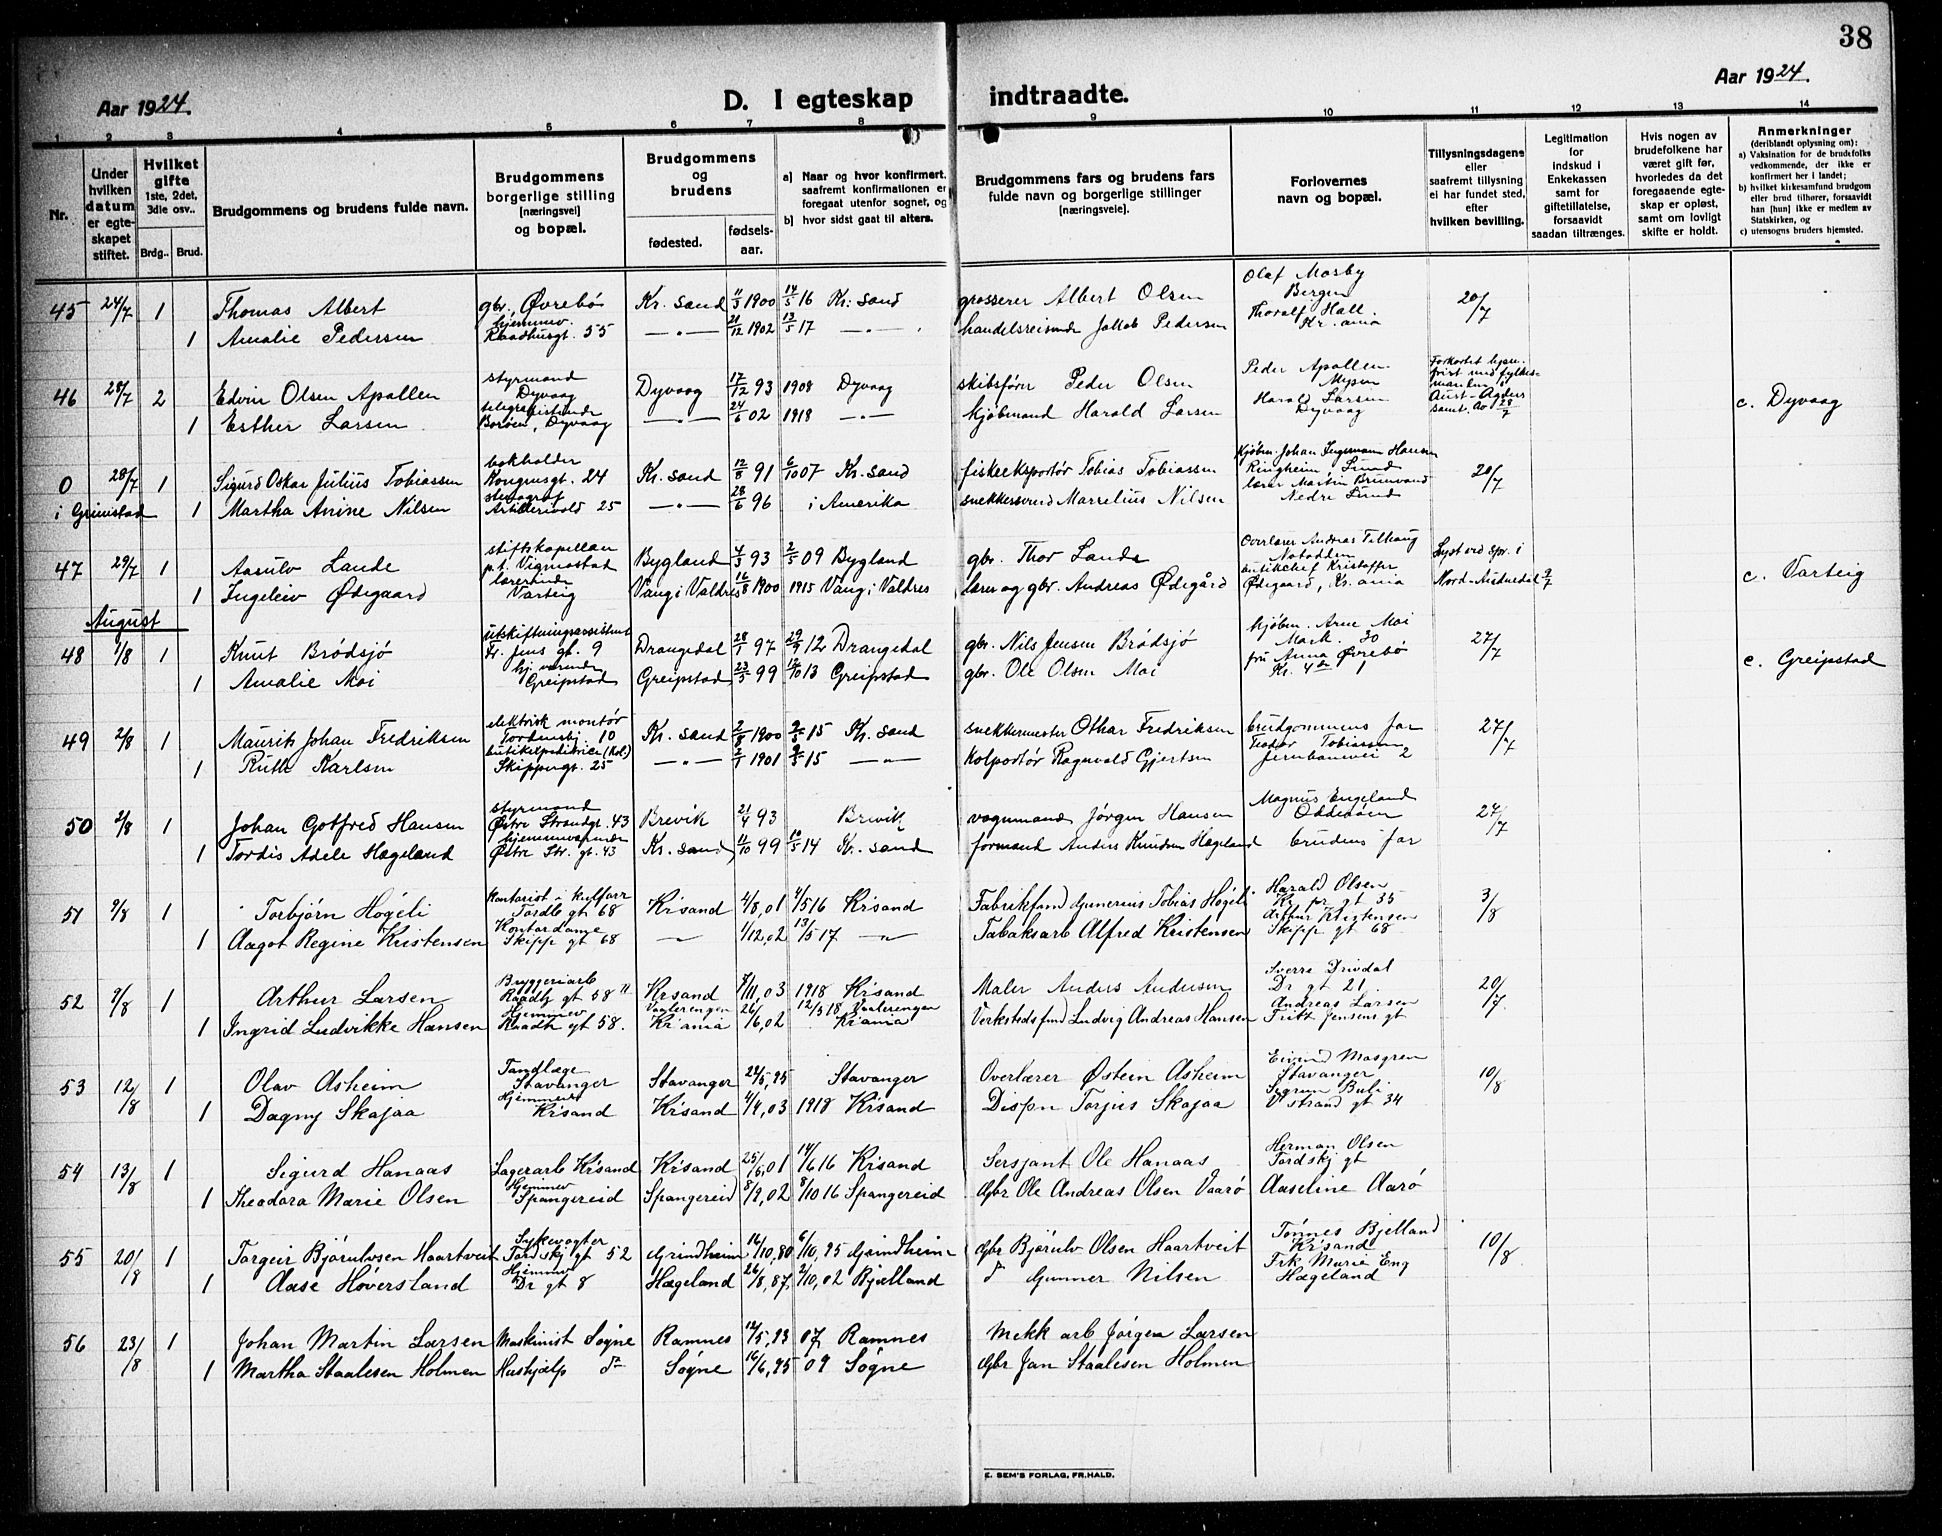 38
Aar 1924.
D. I egteskap indtraadte.
Aar 1924.
1 2 3 4 5 6 7 8 9 10 11 12 13 14
Nr.
Under hvilken datum er egteskapet stiftet.
Hvilket gifte 1ste, 2det, 3die osv..
Brdg.. Brud.
Brudgommens og brudens fulde navn.
Brudgommens borgerlige stilling [næringsvei] og bopæl.
Brudgommens og brudens
fødested. fødselsaar.
a) Naar og hvor konfirmert, saafremt konfirmationen er foregaat utenfor sognet, og
b) hvor sidst gaat til alters.
Brudgommens fars og brudens fars fulde navn og borgerlige stillinger [næringsveie].
Forlovernes navn og bopæl.
Tillysningsdagene eller saafremt tillysning ei har fundet sted, efter hvilken bevilling.
Legitimation for indskud i Enkekassen samt for giftetillatelse, forsaavidt saadan tiltrænges.
Hvis nogen av brudefolkene har været gift før, hvorledes da det foregaaende egteskap er opløst, samt om lovligt skifte er holdt.
Anmerkninger (deriblandt oplysning om):
a) Vaksination for de brudefolks vedkommende, der ikke er konfirmert her i landet;
b) hvilket kirkesamfund brudgom eller brud tilhører, forsaavidt han [hun] ikke er medlem av Statskirken, og
c) utensogns bruders hjemsted.
45 24/7 1 Thomas Albert gbr., Øvrebø Kr. sand 11/3 1900 14/5 16 Kr. sand grosserer Albert Olsen Olaf Mosby Bergen 20/7
1 Amalie Pedersen hjemmev. Raadhusgt. 55 —"— 21/12 1902 13/5 17 —"— handelsreisende Jakob Pedersen Thoralf Hall. Kr. ania
46 28/7 2 Edvin Olsen Apollen styrmand Dyvaag Dyvaag 17/12 93 1908 Dyvaag skibsfører Peder Olsen Peder Apollen Mysen Forkortet lysn. frist med fylkesmanden i Aust-Agders samt. av 28/7 c. Dyvaag
1 Esther Larsen telegrafistinde Borøen, Dyvaag —"— 24/6 02 1918 —"— kjøbmand Harald Larsen Harald Larsen Dyvaag
0 28/7 1 Sigurd Oskar Julius Tobiassen bokholder Kongensgt. 24 Kr. sand 12/8 91 6/10 07 Kr. sand fiskeeksportør Tobias Tobiassen Kjøbm. Johan Ingemann Hansen Ringheim, Lund 20/7
i Grimstad 1 Martha Anine Nilsen stenograf Artillerivold 25 —"— 28/6 96 i Amerika snekkersvend Marselius Nilsen lærer Martin Brunvand Nedre Lund
47 29/7 1 Aasulv Lande stiftskapellan p.t. Vigmostad Bygland 4/3 93 2/5 09 Bygland gbr. Thor Lande Overlærer Andreas Telhaug Notodden Lyst ved spr. i Nord-Audnedal 9/7
1 Ingeleiv Ødegaard lærerinde Varteig Vang i Valdres 16/8 1900 1915 Vang i Valdres lærer og gbr. Andreas Ødegård butikchef Kristoffer Ødegaard, Kr. ania c. Varteig
August
48 1/8 1 Knut Brødsjø utskiftningsassistent Fr. Jens gt. 9 Drangedal 28/1 97 29/9 12 Drangedal gbr. Nils Jensen Brødsjø kjøbm. Arne Moi Mark. 30 27/7
1 Amalie Moi hj. værende Greipstad Greipstad 23/5 99 12/10 13 Greipstad gbr. Ole Olsen Moi fru Anna Øvrebø Kr. 4de 1 c. Greipstad
49 2/8 1 Maurits Johan Fredriksen elektrisk montør Tordenskj. 10 Kr. sand 2/8 1900 9/5 15 Kr. sand snekkermester Othar Fredriksen brudgommens far 27/7
1 Ruth Karlsen butikekspeditrice (Kol) Skippergt. 25 —"— 2/1 1901 9/5 15 —"— Kolportør Ragnvald Gjertsen Teodor Tobiassen Jernbanevei 2
50 2/8 1 Johan Gotfred Hansen styrmand Østre Strandgt. 43 Brevik 21/4 93 Brevik vognmand Jørgen Hansen Magnus Engeland Odderøen 27/7
1 Tordis Adele Hægeland hjemmeværende Østre Str. gt. 43 Kr. sand 11/10 99 10/5 14 Kr. sand formand Anders Knudsen Hægeland brudens far
51 9/8 1 Torbjørn Høgeli Kontorist Tordk gt 68 Krsand 4/8, 01 4/5 16 Krsand Fabrikfmd Gunerius Tobias Høgeli Harald Olsen Kr. pr. gt 35 3/8
1 Aagot Regine Kristensen Kontordame Skipp gt 68 —"— 1/12, 02 13/5 17 —"— Tabaksarb Alfred Kristensen Arthur Kristensen Skipp gt 68
52 9/8 1 Arthur Larsen Bryggeriarb Raadh gt 58 II Krsand 7/11, 03 1918 Krsand Maler Anders Andersen Sverre Drivdal Dr gt 21 20/7
1 Ingrid Ludvikke Hansen Hjemmev Raadh gt 58. Vaalerengen Kr.ania 26/6, 02 12/5 18 Vaalerengen Kr.ania Verkstedsfmd Ludvig Andreas Hansen Andreas Larsen Fritt Jensens gt
53 12/8 1 Olav Asheim Tandlæge Stavanger Stavanger 24/5, 95 Stavanger Overlærer Østein Asheim Eivind Mosgren Stavanger 10/8
1 Dagny Skajaa Hjemmev Krsand Krsand 4/4, 03 1918 Krsand Dispn Torjus Skajaa Sigrun Buli V strand gt 34
54 13/8 1 Sigurd Hanaas Lagerarb Krsand Krsand 25/6, 01 14/6 16 Krsand Sersjant Ole Hanaas Herman Olsen Tordskj gt
1 Theodora Marie Olsen Hjemmev Spangereid Spangereid 8/2, 02 8/10 16 Spangereid Gbr Ole Andreas Olsen Vaarø Aaseline Aarø
55 20/8 1 Torgeir Bjørulvsen Haartveit Sykevogter Tordskj gt 52 Grindheim 16/10, 80 6/10, 95 Grindheim Gbr Bjørulv Olsen Haartveit Tønnes Bjelland Krsand 10/8
1 Aase Høversland Hjemmev Dr gt 8 Hægeland 26/8, 87, 2/10, 02 Bjelland do Gunner Nilsen Frk Marie Eng Hægeland
56 23/8 1 Johan Martin Larsen Maskinist Søgne Ramnes 12/5, 93 07, Ramnes Mekk arb Jørgen Larsen
1 Martha Staalesen Holmen Hushjælp do Søgne 16/6, 95 09 Søgne Gbr Jan Staalesen Holmen
E. SEM'S FORLAG, FR.HALD.